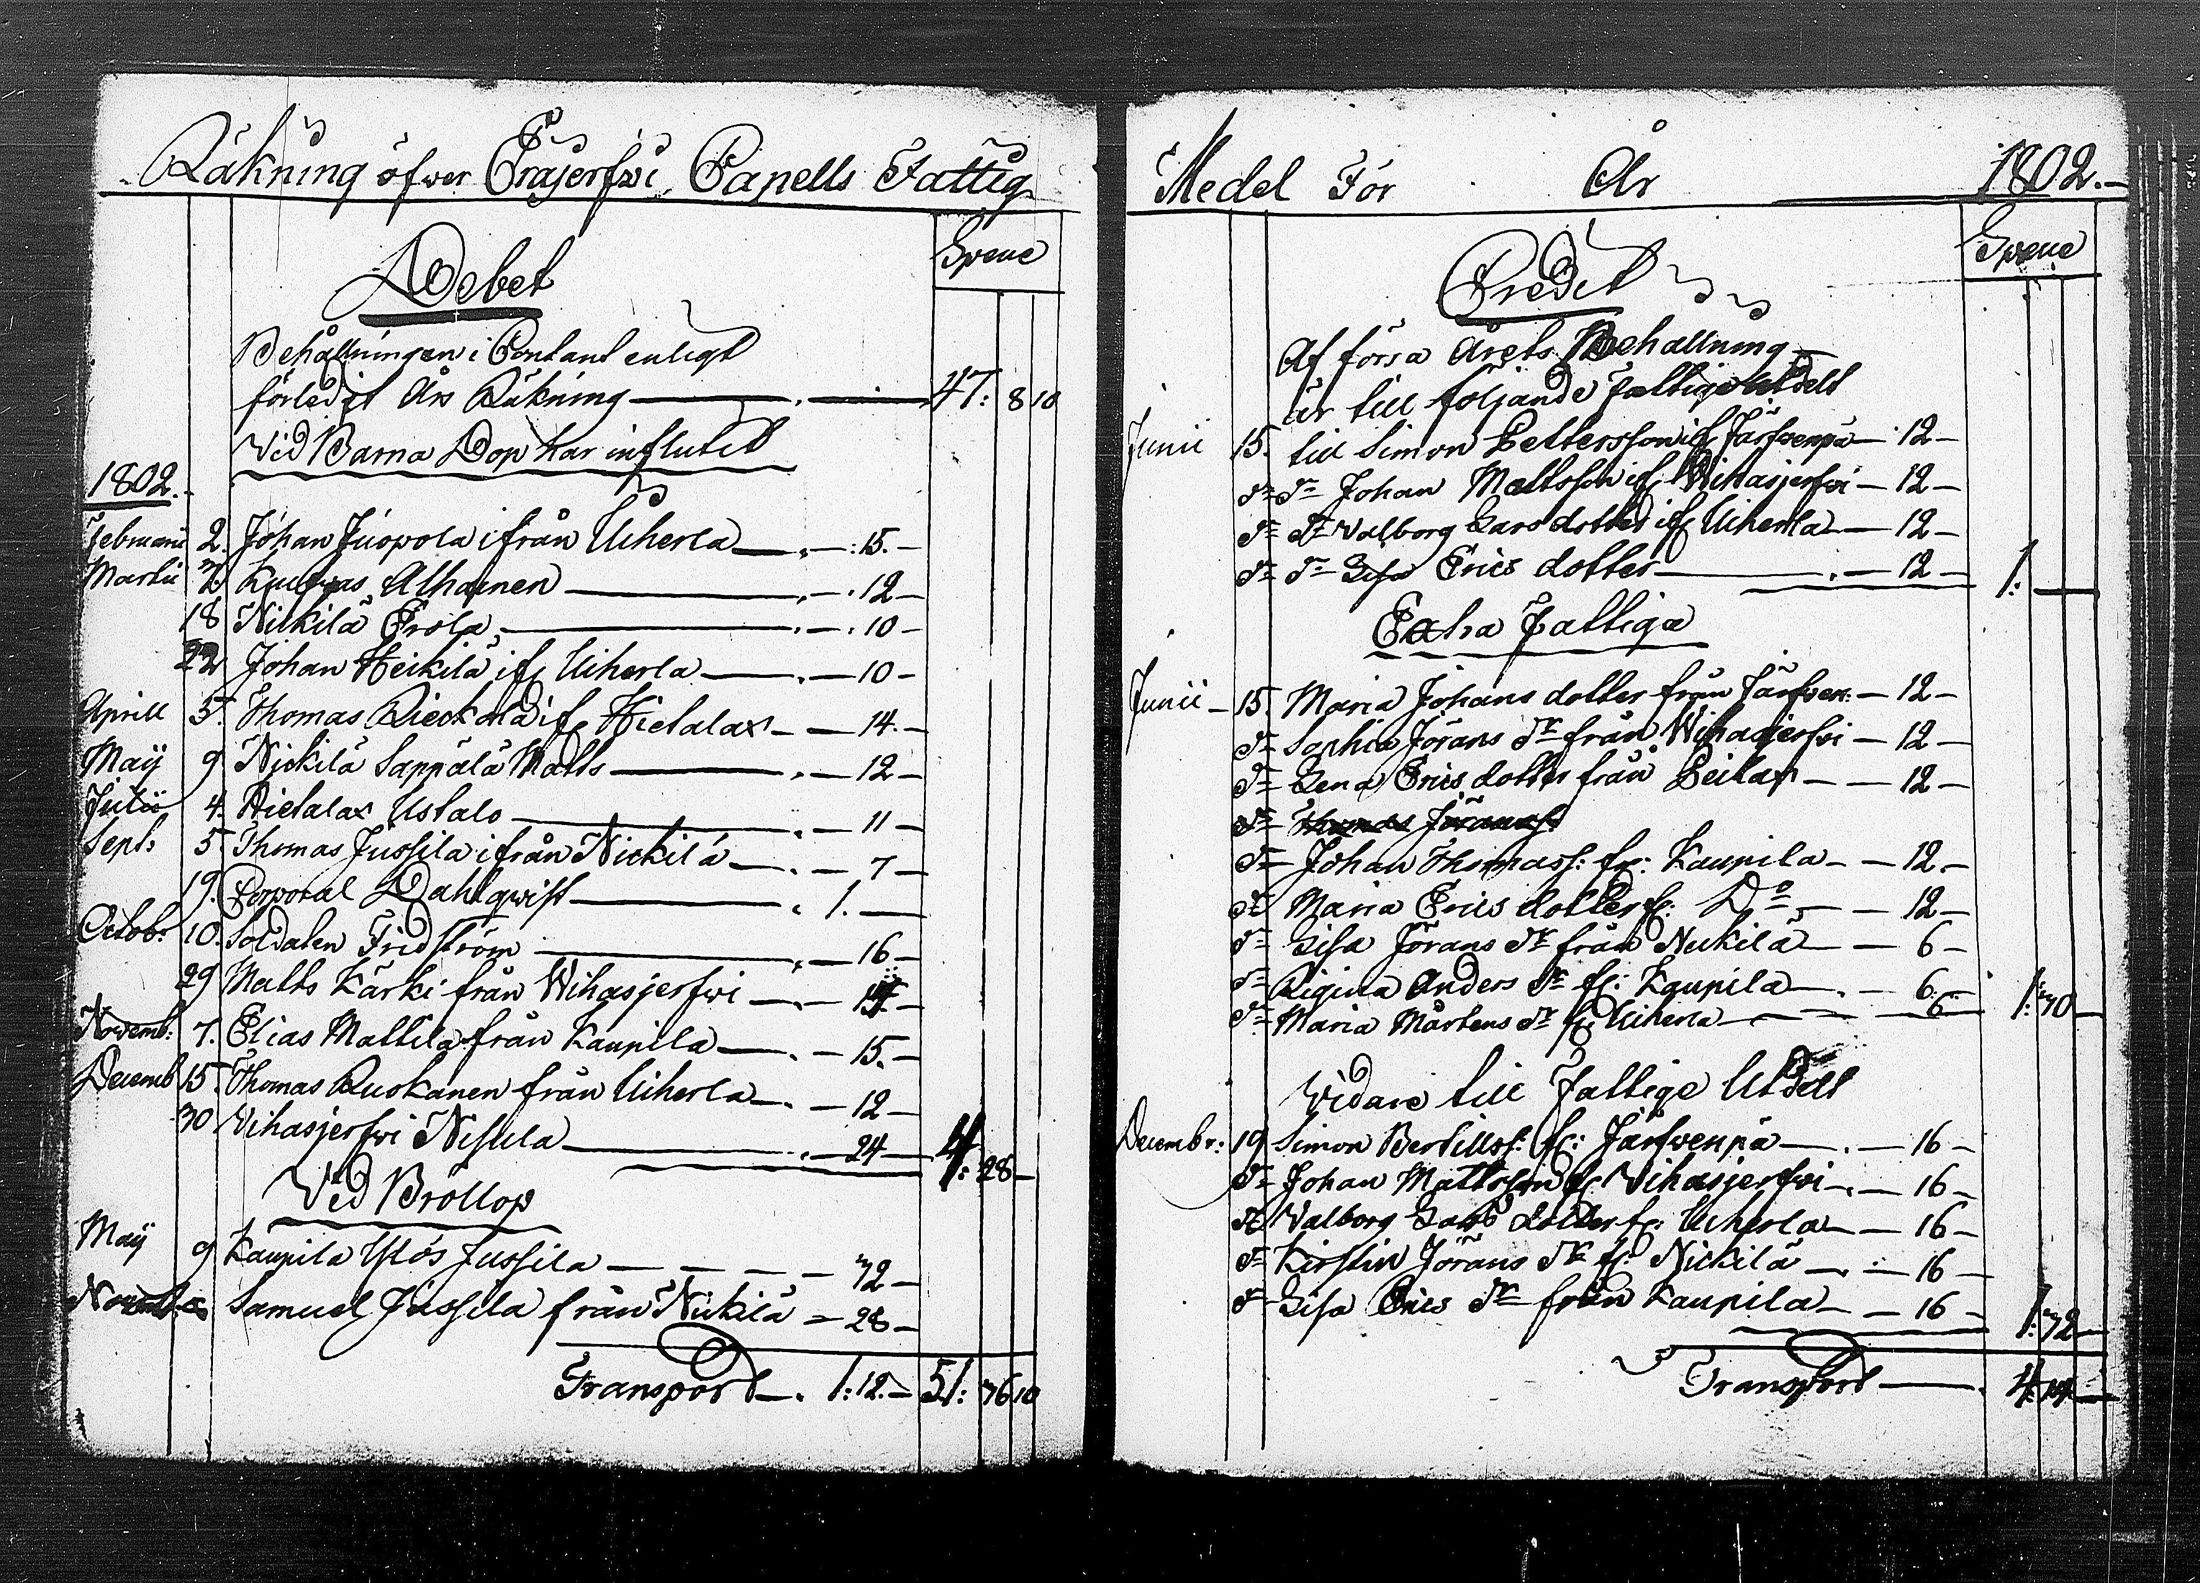 Räkning öfwer Eräjerfwi Capells Fattig
Specie
Debet
Behållningen i Contant enligt
förledit Års Räkning — 47: 8 10
Vid Barna Dop har influtit
1802.
Februarii 2. Johan Juopola ifrån Uiherla — 15. —
Martii 7. Alhainen — 12 —
18 Nickilä Erola — 10 —
22 Johan Heikilä if Uiherla — 10 —
Aprill 5. Thomas if Hietalax — 14. —
Maij 9 Nickilä Sappälä Matts — 12 —
Julii 4. Hietalax Ustalo — 11 —
Sept: 5. Thomas Jussila ifrån Nickilä — 7 —
19. Corporal Dahlqwist — 1. —
Octob: 10. Soldaten Fridström — 16 —
29 Matts Kärki från Wihasjerfwi —
Novemb: 7. Elias Mattila från Kaupila — 15. —
Decemb 15. Thomas Ruokanen från Uiherla — 12 —
30 Vihasjerfwi Nisula — 24 — 4: 28 —
Vid Bröllop
Maij 9 Kaupila Ylös Jussila — 72 —
Samuel Jussila från Nickilä — 28 —
Transport — 1: 12. — 51: 76 10
Medel För År 1802. —
Specie
Credit
Af förra Årets Behållning
är till följande Fattige Utdelt
Junii 15. till Simon Bettersson if Järfwenpä — 12 —
Dº Dº Johan Mattsson if Wihasjerfwi — 12 —
Dº Dº Valborg Lars dotter if Uiherla — 12 —
Dº Dº Lisa Erics dotter — 12 — 1: —
Extra Fattiga
Junii — 15. Maria Johans dotter från Järfwen: — 12 —
Dº Sophia Jörans Dr från Wihasjerfwi — 12 —
Dº Lena Erics dotter från Leilax — 12 —
Dº Thomas Jöranss:
Dº Johan Thomass: fr: Kaupila — 12 —
Dº Maria Erics dotter fr: Dº — 12 —
Dº Lisa Jörans Dr från Nickilä — 6 —
Dº Rigina Anders Dr fr: Kaupila — 6 —
Dº Maria Mårtens Dr fr Uiherla — 6 — 1: 70 —
Vidare till Fattige Utdelt
Decembr: 19 Simon Bertillss: fr: Järfwenpä — 16 —
Dº Johan Mattsson fr Vihasjerfwi — 16 —
Dº Valborg Lars dotter fr: Uiherla — 16 —
Dº Kirstin Jörans Dr fr: Nickilä — 16 —
Dº Lisa Erics Dr från Kaupila — 16 — 1: 72 —
Transport — 4: